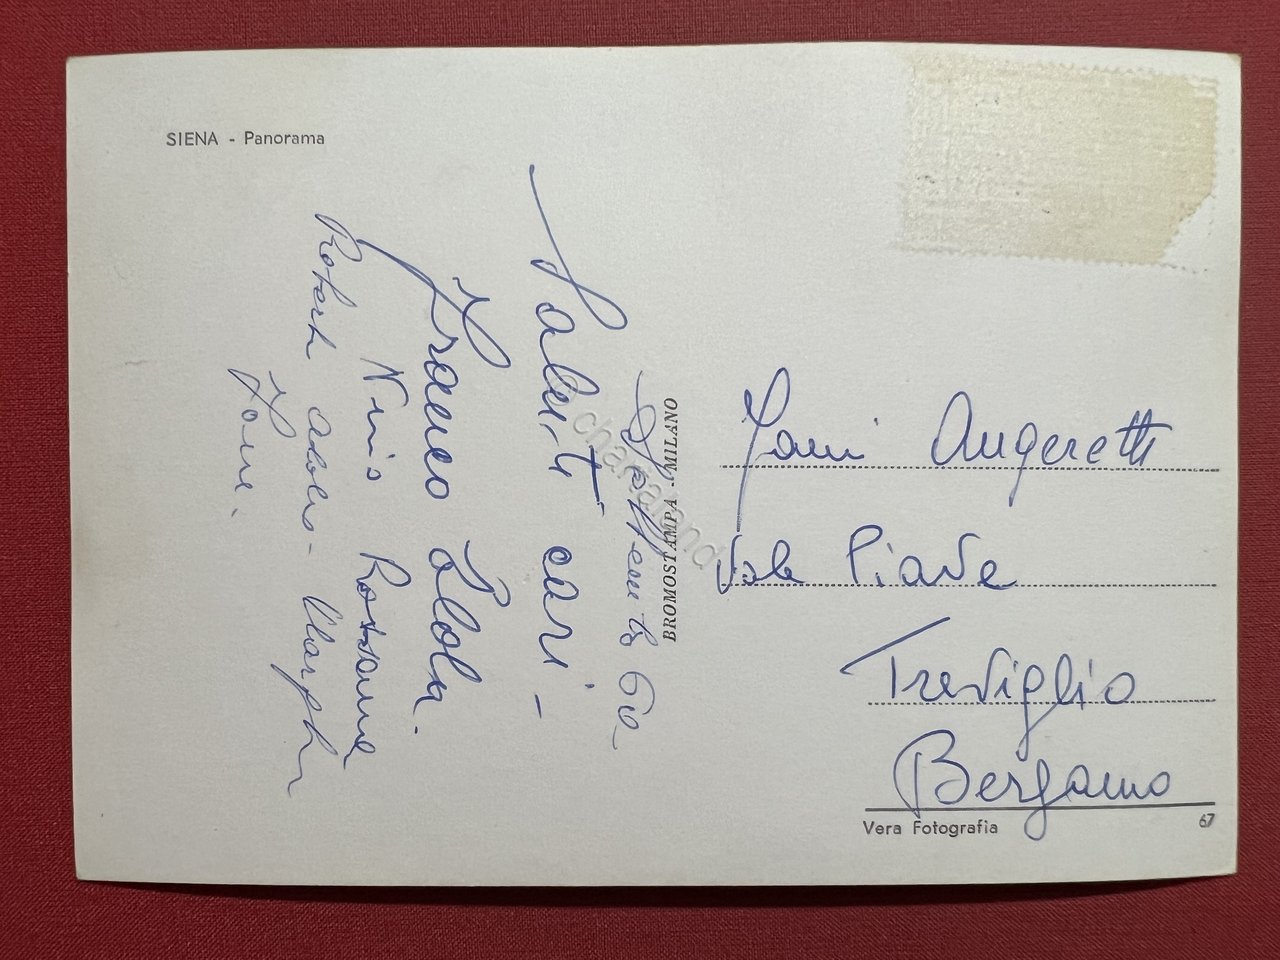 SIENA - Panorama
Settembre 60
Saluti cari -
Franco Lola.
Nino Rossana
Robert
BROMOSTAMPA - MILANO
chartaland
Fam Angeretti
Viale Piave
Treviglio
Bergamo
Vera Fotografia
67